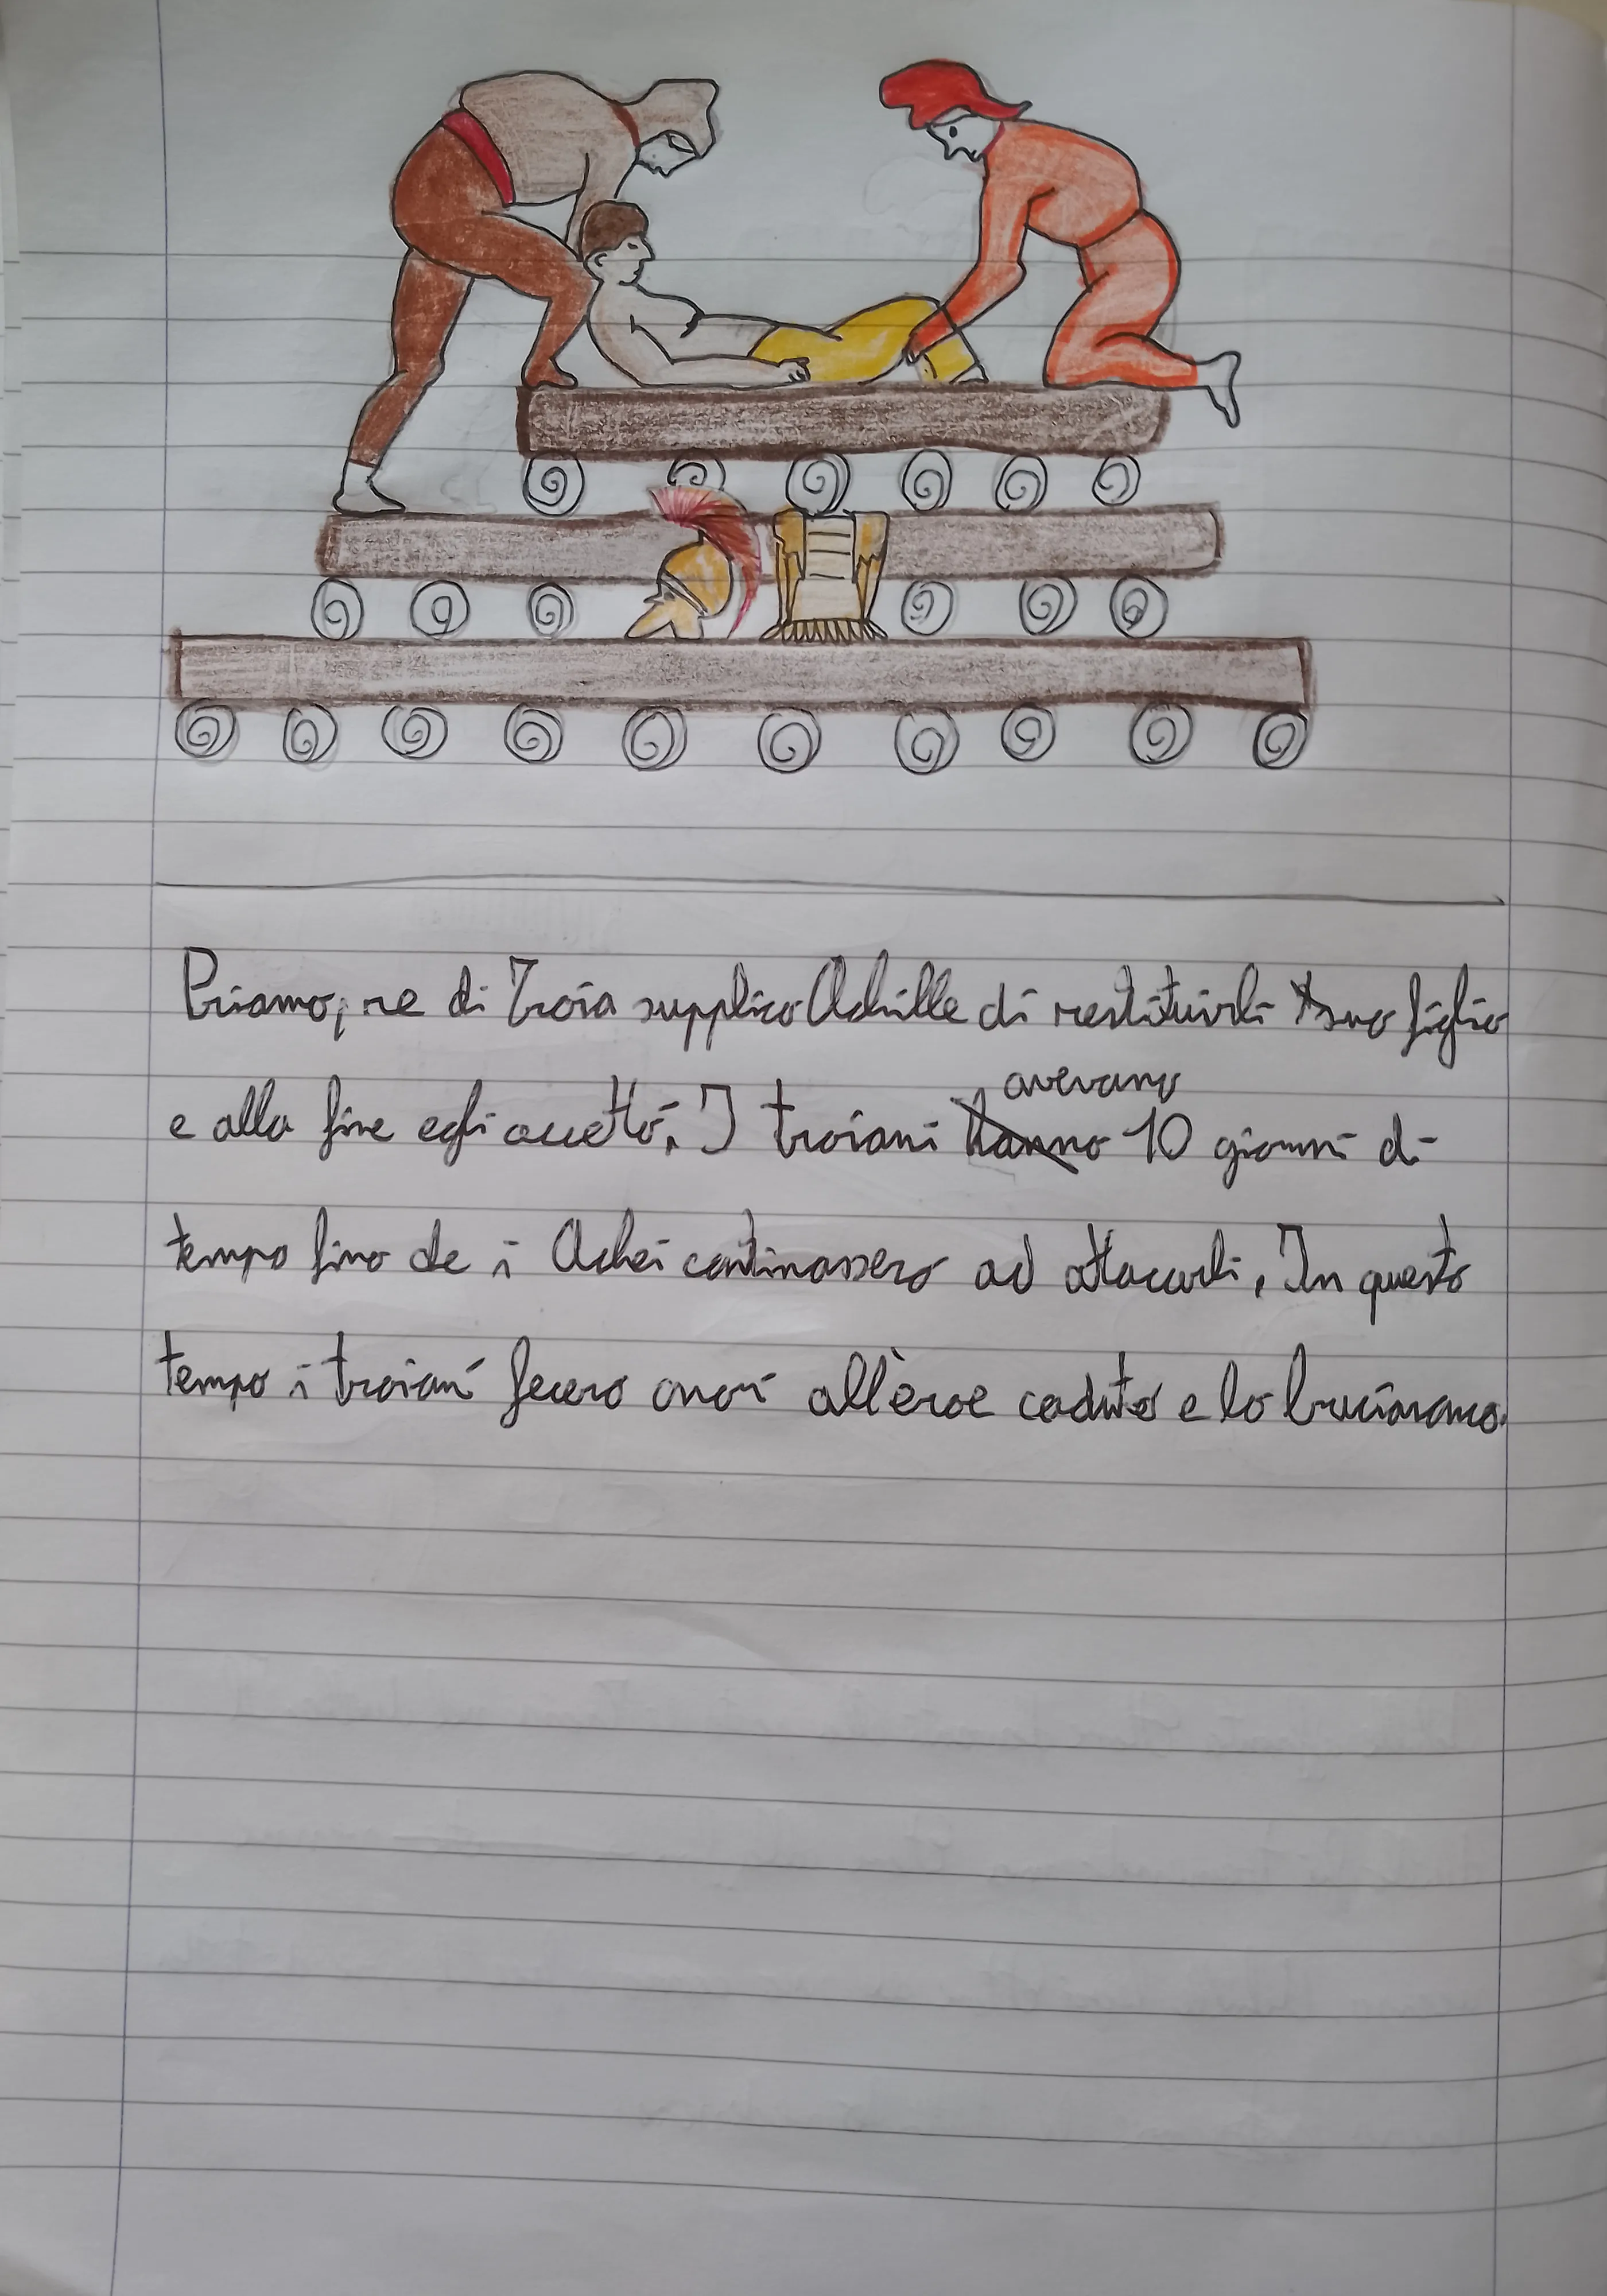 Priamo, re di Troia supplico Achille di restituirli suo figlio
e alla fine egli accettó. I troiani avevano 10 giorni di
tempo fino che i Achei continassero ad attacarli. In questo
tempo i troiani fecero onori all'èroe caduto e lo bruciarano.